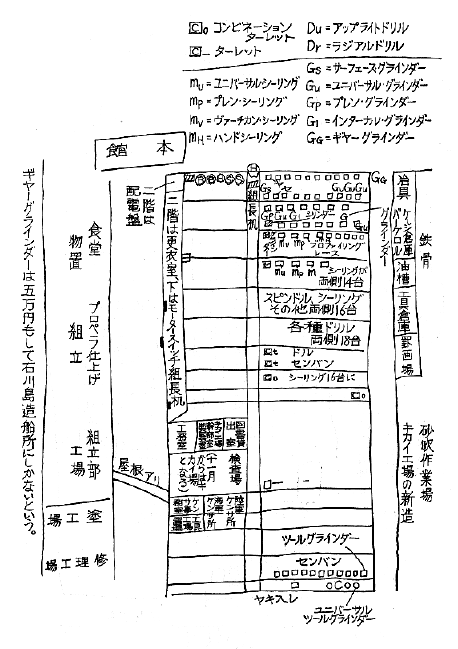 コンビネーション
ターレット
ターレット
Du=アップライトドリル
Dr=ラジアルドリル
Gs=サーフェース・グラインダー
mu=ユニバーサルシーリング
Gu=ユニバーサル・グラインダー
mp=プレン・シーリング
Gp=プレン・グラインダー
mv=ヴァーチカン・シーリング
GI=インターカル・グラインダー
mH=ハンドシーリング
GG=ギヤーグラインダー
本館
ギヤーグラインダーは五万円もして石川島造船所にしかないという。
食堂
物置
プロペラ仕上げ
組立
組立部
工場
塗工場
修理工場
二階は
配電盤
二階は更衣室、下はモータースイッチ組長机
屋根アリ
組長机
H
GG
Gs
GuGuGu
Gp Gu GI シリンダー G
Gu
グラインダー
mu mp
プロファイリング
レース
mu mp m
シーリング
両側14台
スピンドル、シーリング
その他両側16台
各種ドリル
両側18台
ドル
センバン
シーリング16台に
工務室
図書質
出室
検査場
(十一月
から
となる)
海軍
ケンサ所
陸軍
ケンサ所
ツールグラインダー
センバン
ヤキ入レ
ユニバーサル
ツールグラインダー
治具
油槽
工具倉庫
罫画場
鉄骨
砂吹作業場
キカイ工場の新造